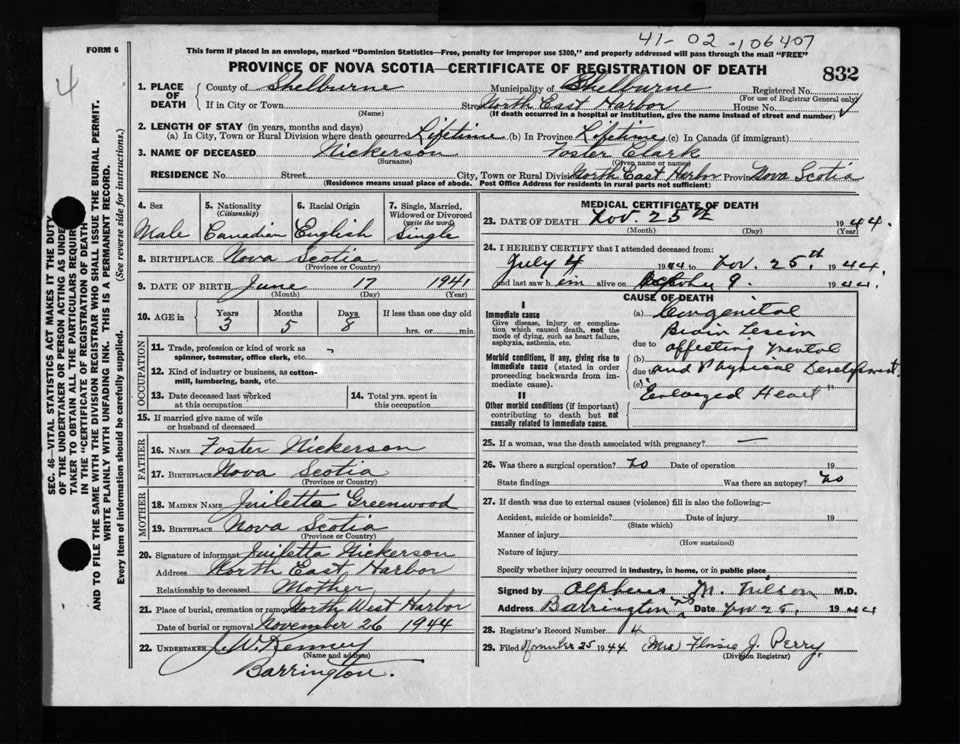 41-02-106407
FORM 6
This form if placed in an envelope, marked "Dominion Statistics—Free, penalty for improper use $300," and properly addressed will pass through the mail "FREE"
PROVINCE OF NOVA SCOTIA—CERTIFICATE OF REGISTRATION OF DEATH
832
4
1. PLACE OF DEATH
County of Shelburne Municipality of Shelburne Registered No.
(For use of Registrar General only)
If in City or Town Street North East Harbor House No.
(Name) (If death occurred in a hospital or institution, give the name instead of street and number)
2. LENGTH OF STAY (in years, months and days)
(a) In City, Town or Rural Division where death occurred Lifetime (b) In Province Lifetime (c) In Canada (if immigrant)
3. NAME OF DECEASED Nickerson Foster Clark
(Surname) (Given name or names)
RESIDENCE No. Street City, Town or Rural Division North East Harbor Province Nova Scotia
(Residence means usual place of abode. Post Office Address for residents in rural parts not sufficient)
4. Sex
Male
5. Nationality
(Citizenship)
Canadian
6. Racial Origin
English
7. Single, Married, Widowed or Divorced
(write the word)
Single
8. BIRTHPLACE Nova Scotia
(Province or Country)
9. DATE OF BIRTH June 17 1941
(Month) (Day) (Year)
10. AGE in Years Months Days If less than one day old
3 5 8 hrs. or min.
OCCUPATION
11. Trade, profession or kind of work as
spinner, teamster, office clerk, etc.
12. Kind of industry or business, as cotton-
mill, lumbering, bank, etc.
13. Date deceased last worked
at this occupation
14. Total yrs. spent in
this occupation
15. If married give name of wife
or husband of deceased
FATHER
16. NAME Foster Nickerson
17. BIRTHPLACE Nova Scotia
(Province or Country)
MOTHER
18. MAIDEN NAME Juiletta Greenwood
19. BIRTHPLACE Nova Scotia
(Province or Country)
20. Signature of informant Juiletta Nickerson
Address North East Harbor
Relationship to deceased Mother
21. Place of burial, cremation or removal North West Harbor
Date of burial or removal November 26 1944
22. UNDERTAKER J. W. Kenney
(Name and address)
Barrington.
MEDICAL CERTIFICATE OF DEATH
23. DATE OF DEATH Nov. 25th 1944.
(Month) (Day) (Year)
24. I HEREBY CERTIFY that I attended deceased from:
July 4 1944 to Nov. 25th, 1944.
and last saw him alive on October 9. 1944.
CAUSE OF DEATH
I
Immediate cause
Give disease, injury or complication which caused death, not the mode of dying, such as heart failure, asphyxia, asthenia, etc.
Morbid conditions, if any, giving rise to immediate cause (stated in order proceeding backwards from immediate cause).
II
Other morbid conditions (if important) contributing to death but not causally related to immediate cause.
(a) Congenital
Brain Lesion
due to affecting mental
(b)
due to and Physical Development.
(c)
"Enlarged Heart"
25. If a woman, was the death associated with pregnancy? —
26. Was there a surgical operation? no Date of operation 19
State findings Was there an autopsy? no
27. If death was due to external causes (violence) fill in also the following:—
Accident, suicide or homicide? Date of injury 19
(State which)
Manner of injury
(How sustained)
Nature of injury
Specify whether injury occurred in industry, in home, or in public place
Signed by Alpheus M. Wilson M.D.
Address Barrington NS Date Nov 25, 1944
28. Registrar's Record Number 4
29. Filed November 25 1944 (Mrs) Flossie J. Perry,
(Division Registrar)
SEC. 46—VITAL STATISTICS ACT MAKES IT THE DUTY
OF THE UNDERTAKER OR PERSON ACTING AS UNDER-
TAKER TO OBTAIN ALL THE PARTICULARS REQUIRED
IN THE "CERTIFICATE OF REGISTRATION OF DEATH"
AND TO FILE THE SAME WITH THE DIVISION REGISTRAR WHO SHALL ISSUE THE BURIAL PERMIT.
WRITE PLAINLY WITH UNFADING INK. THIS IS A PERMANENT RECORD.
Every item of information should be carefully supplied. (See reverse side for instructions.)